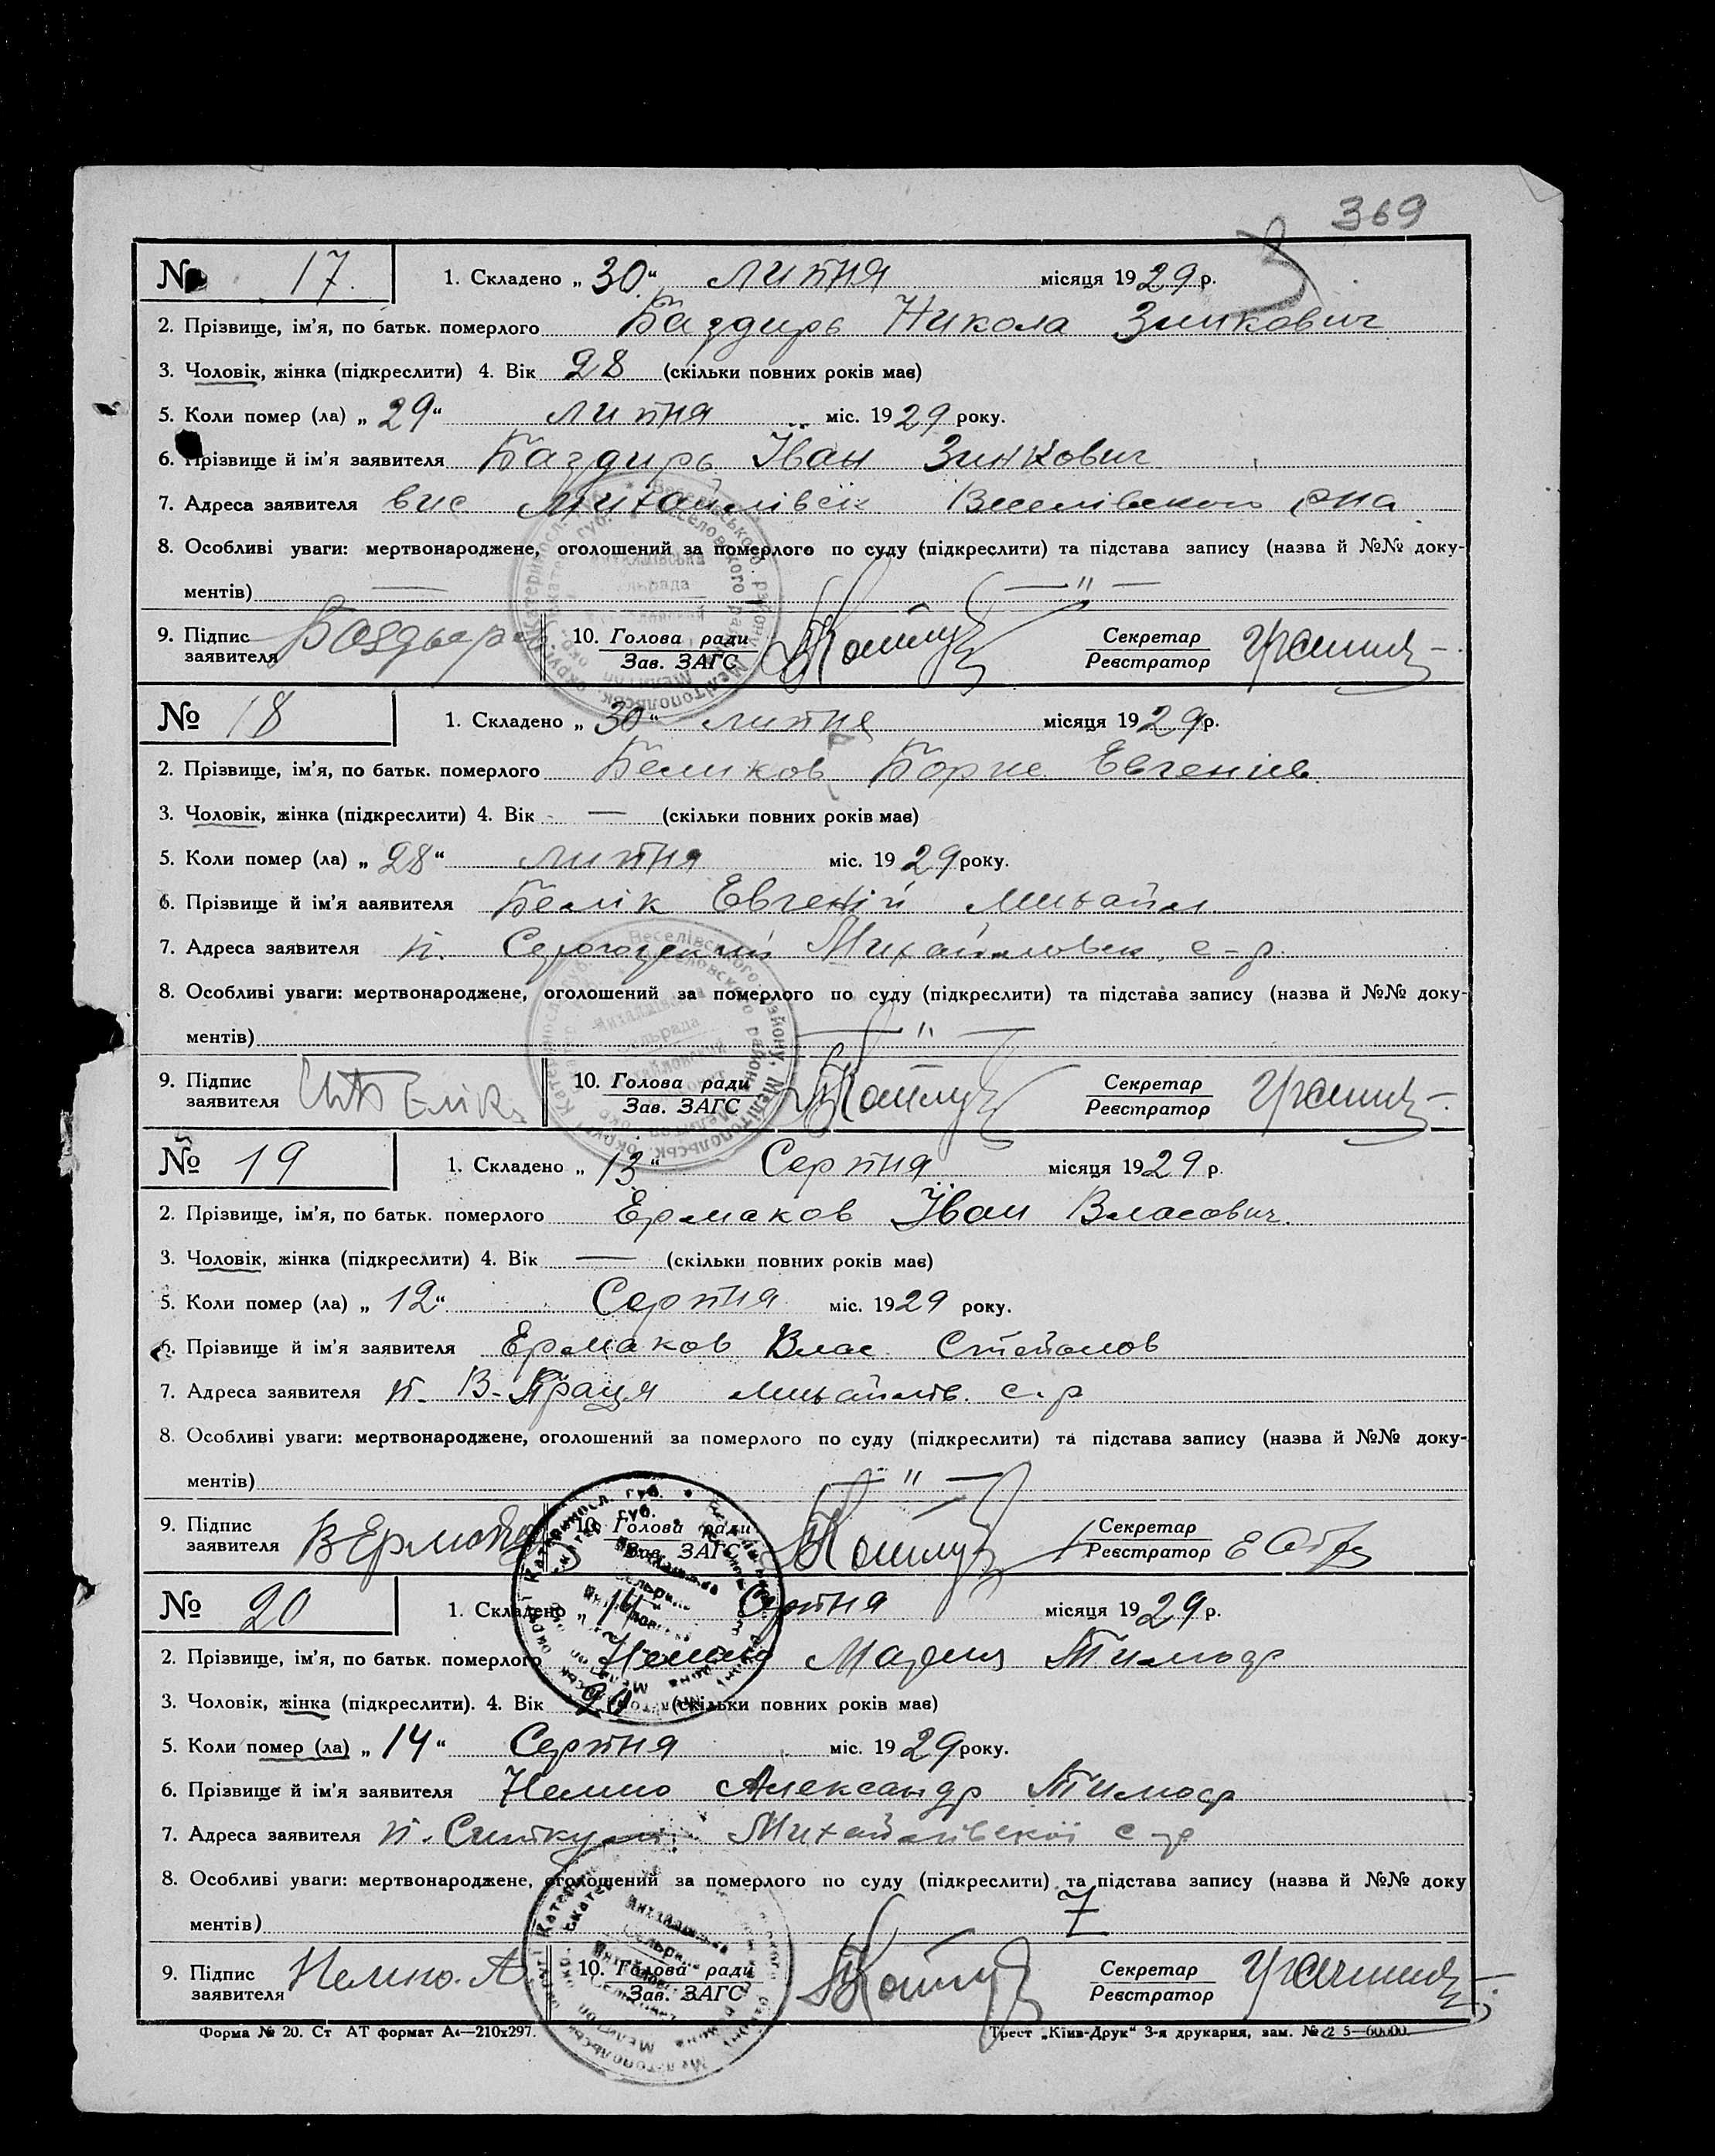 369
№ 17. 1. Складено „30“ липня місяця 1929 р.
2. Прізвище, ім’я, по батьк. померлого Баздирь Никола Зинкович
3. Чоловік, жінка (підкреслити) 4. Вік 28 (скільки повних років має)
5. Коли помер (ла) „29“ липня міс. 1929 року.
6. Прізвище й ім’я заявителя Баздирь Іван Зинкович
7. Адреса заявителя вис Михайлівск Веселівського рна
8. Особливі уваги: мертвонароджене, оголошений за померлого по суду (підкреслити) та підстава запису (назва й №№ доку-
ментів) — — " —
9. Підпис заявителя 10. Голова ради Зав. ЗАГС Секретар Реєстратор
№ 18 1. Складено „30“ липня місяця 1929 р.
2. Прізвище, ім’я, по батьк. померлого Беликов Борис Евгеніев.
3. Чоловік, жінка (підкреслити) 4. Вік — (скільки повних років має)
5. Коли помер (ла) „28“ липня міс. 1929 року.
6. Прізвище й ім’я ааявителя Белік Евгеній Михайл.
7. Адреса заявителя п. Михайловск. с-р.
8. Особливі уваги: мертвонароджене, оголошений за померлого по суду (підкреслити) та підстава запису (назва й №№ доку-
ментів) — " —
9. Підпис заявителя 10. Голова ради Зав. ЗАГС Секретар Реєстратор
№ 19 1. Складено „13“ Серпня місяця 1929 р.
2. Прізвище, ім’я, по батьк. померлого Ермаков Іван Власович.
3. Чоловік, жінка (підкреслити) 4. Вік — (скільки повних років має)
5. Коли помер (ла) „12“ Серпня міс. 1929 року.
6. Прізвище й ім’я заявителя Ермаков Влас Степанов
7. Адреса заявителя п. В-Праця Михайлів. с.р
8. Особливі уваги: мертвонароджене, оголошений за померлого по суду (підкреслити) та підстава запису (назва й №№ доку-
ментів) — " —
9. Підпис заявителя 10. Голова ради Зав. ЗАГС Секретар Реєстратор
№ 20 1. Складено „14“ Серпня місяця 1929 р.
2. Прізвище, ім’я, по батьк. померлого Мария Тимоф
3. Чоловік, жінка (підкреслити). 4. Вік (скільки повних років має)
5. Коли помер (ла) „14“ Серпня міс. 1929 року.
6. Прізвище й ім’я заявителя Немно Александр Тимоф
7. Адреса заявителя п. Михайлівскої с-р
8. Особливі уваги: мертвонароджене, оголошений за померлого по суду (підкреслити) та підстава запису (назва й №№ доку
ментів)
9. Підпис заявителя Немно. А 10. Голова ради Зав. ЗАГС Секретар Реєстратор
Форма № 20. Ст АТ формат А4—210х297. Трест „Київ-Друк“ 3-я друкарня, зам. №